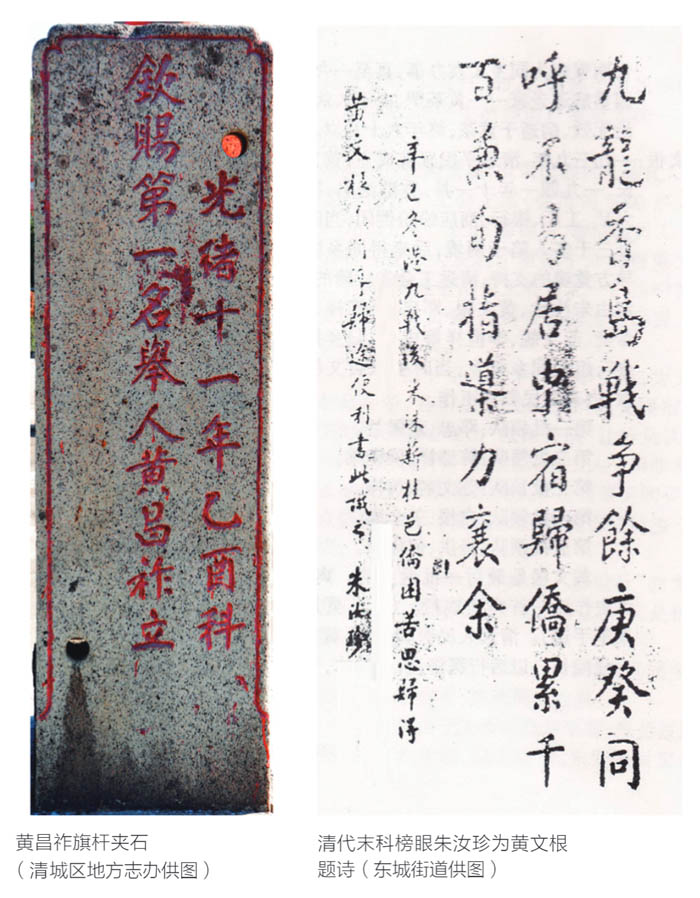 光緒十一年乙酉科
欽賜第一名舉人黃昌祚立
九龍香島戰争餘庚癸同
呼不易居宿歸僑累千
百黃指導力襄余
辛巳冬港九戰後米珠薪桂邑僑困苦思歸得
黃文根歸途便利書此誌 朱汝珍
黄昌祚旗杆夹石
（清城区地方志办供图）
清代末科榜眼朱汝珍为黄文根
题诗（东城街道供图）